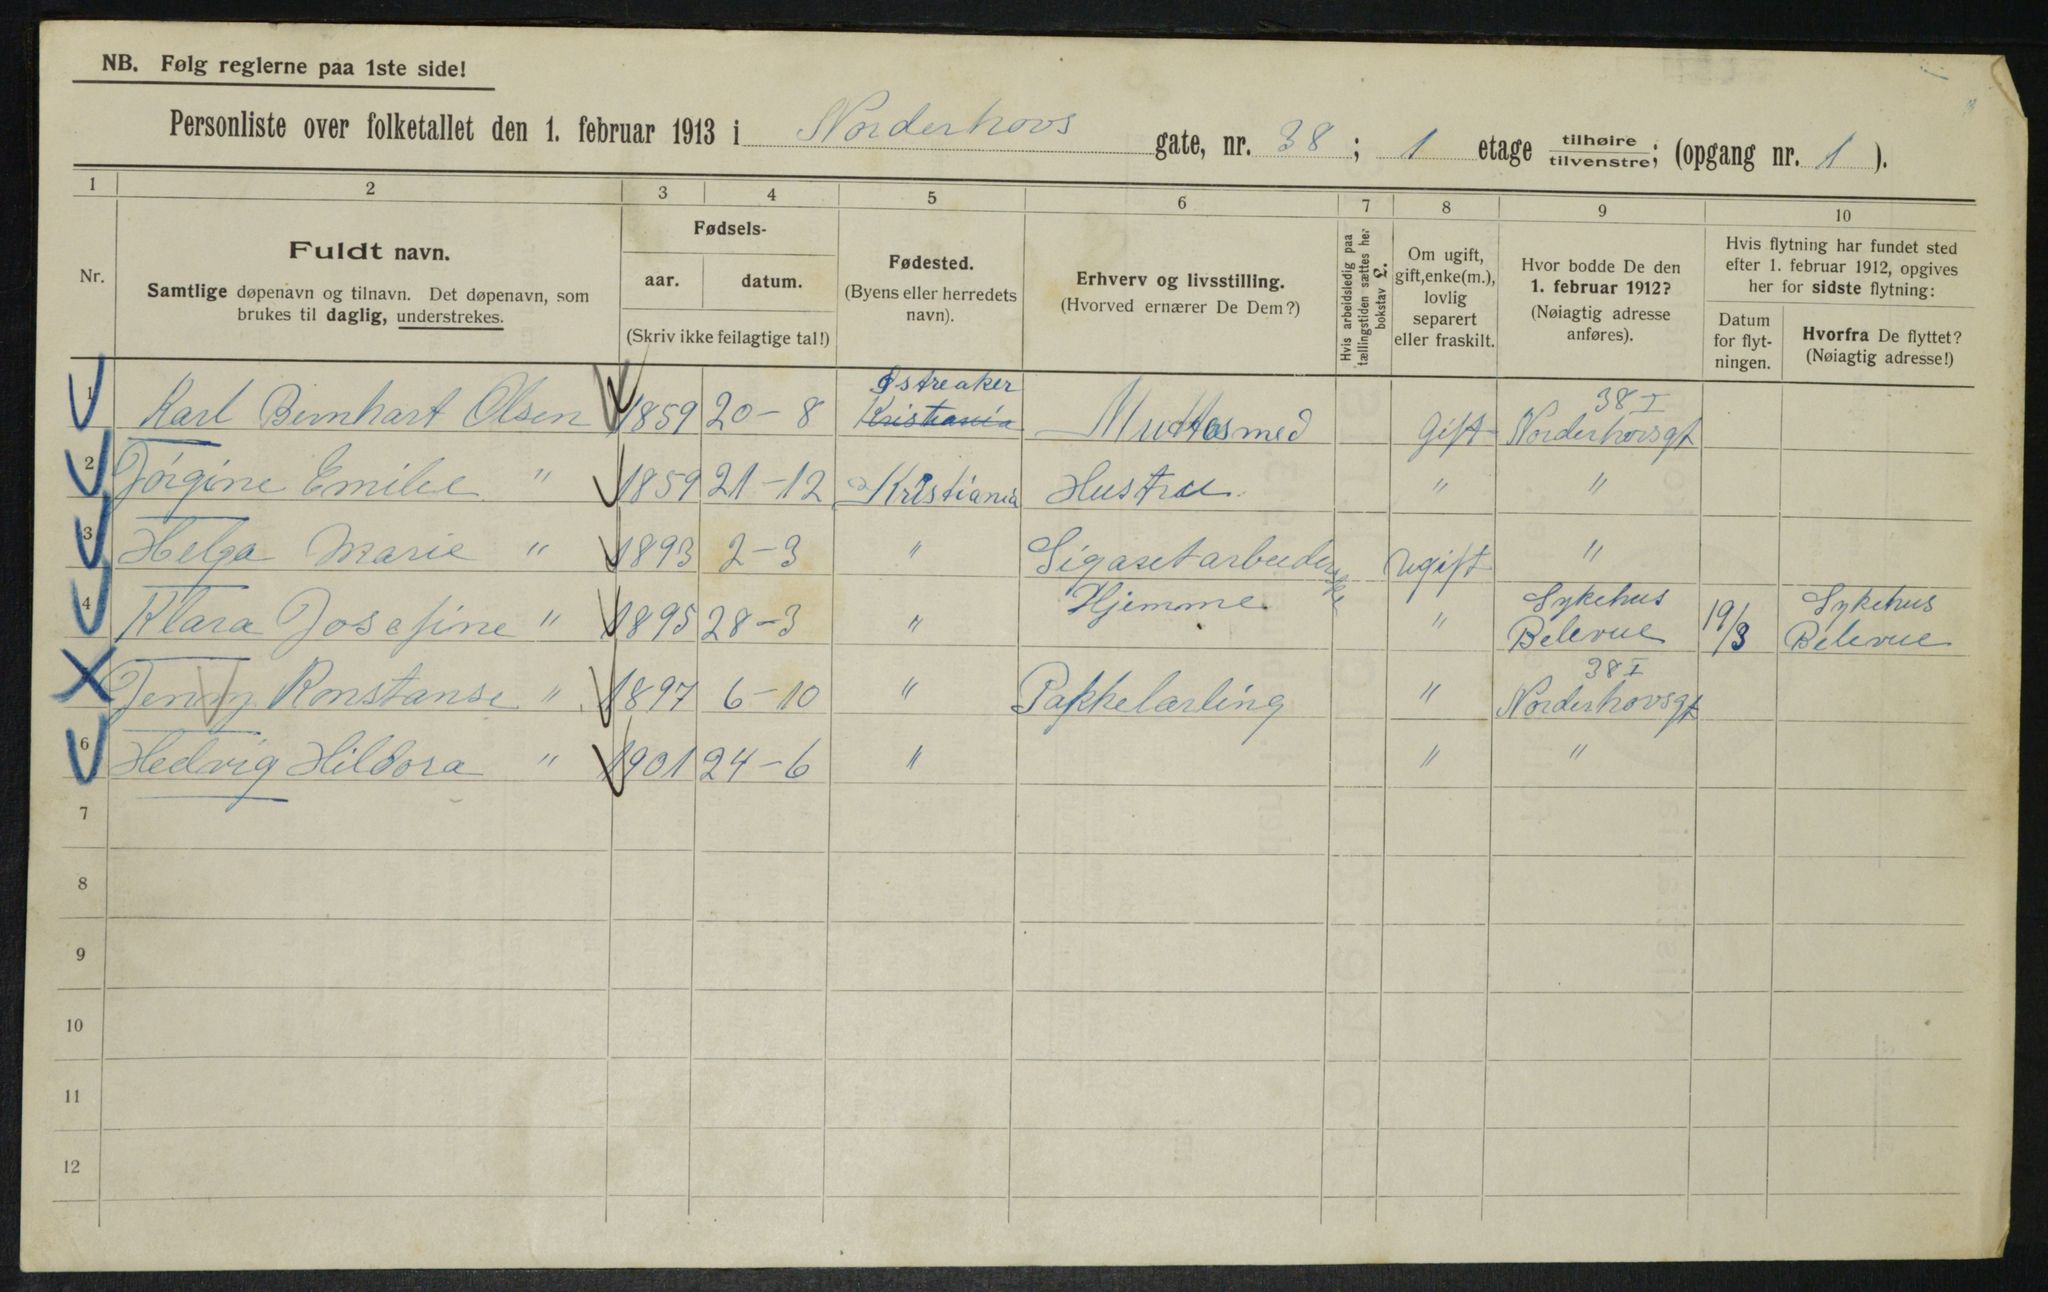 NB. Følg reglerne paa 1ste side!
Personliste over folketallet den 1. februar 1913 i Norderhovs gate, nr. 38 ; 1 etage tilhøire/tilvenstre; (opgang nr. 1 ).
1 2 3 4 5 6 7 8 9 10
Nr.
Fuldt navn.
Samtlige døpenavn og tilnavn. Det døpenavn, som
brukes til daglig, understrekes.
Fødsels-
aar. datum.
(Skriv ikke feilagtige tal!)
Fødested.
(Byens eller herredets
navn).
Erhverv og livsstilling.
(Hvorved ernærer De Dem?)
Hvis arbeidsledig paa
tællingstiden sættes her
bokstav L.
Om ugift,
gift, enke(m.),
lovlig
separert
eller fraskilt.
Hvor bodde De den
1. februar 1912?
(Nøiagtig adresse
anføres).
Hvis flytning har fundet sted
efter 1. februar 1912, opgives
her for sidste flytning:
Datum
for flyt-
ningen.
Hvorfra De flyttet?
(Nøiagtig adresse!)
Østreaker 38 I
1 Karl Bernhart Olsen 1859 20-8 Kristiania gift Norderhovsgt
2 Jörgine Emilie " 1859 21-12 Kristiania Hustru " "
3 Helga Marie " 1893 2-3 " Sigaretarbeiderske ugift "
4 Klara Josefine " 1895 28-3 " Hjemme " Sykehus Belevue 19/3 Sykehus Belevue
38 I
Jenny Konstanse " 1897 6-10 " Pakkelærling " Norderhovsgt
6 Hedvig Hildora " 1901 24-6 " " "
7
8
9
10
11
12